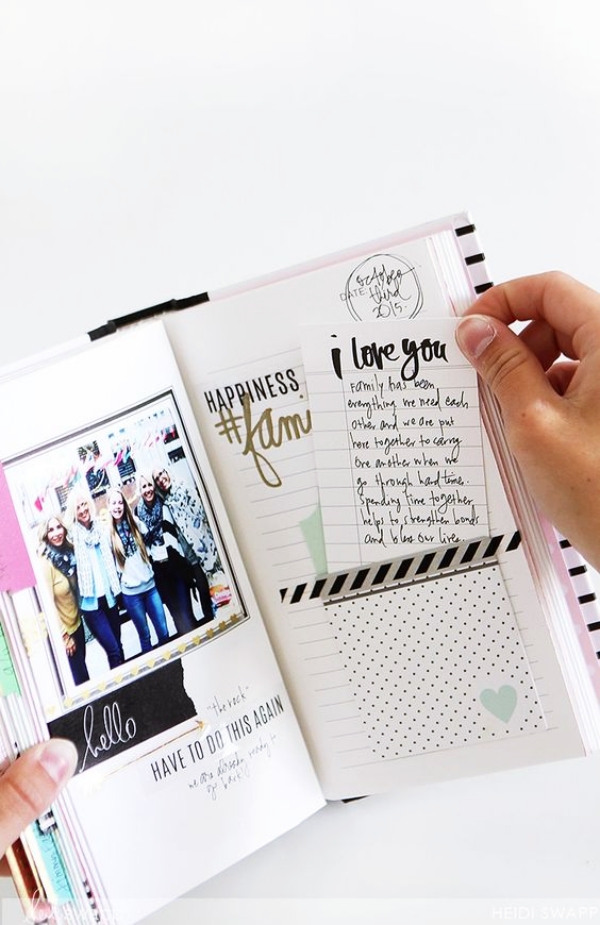 hello
"the rock"
HAVE TO DO THIS AGAIN
we are already ready to
go back!
DATE:
october
third
2015.
HAPPINESS
#fami
i love you
Family has been
everything we need each
other and we are put
here together to carry
one another when we
go through hard time.
Spending time together
helps to strengthen bonds
and bless our lives.
HEIDI SWAPP